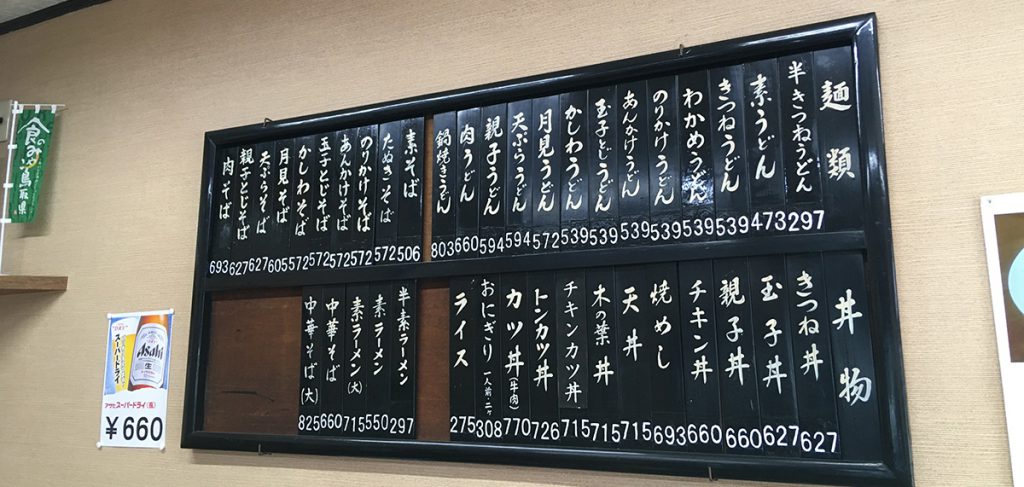 麺類
半きつねうどん 297
素うどん 473
きつねうどん 539
わかめうどん 539
のりかけうどん 539
あんかけうどん 539
玉子とじうどん 539
かしわうどん 539
月見うどん 572
天ぷらうどん 594
親子うどん 594
肉うどん 660
鍋焼きうどん 803
素そば 506
たぬきそば 572
のりかけそば 572
あんかけそば 572
玉子とじそば 572
かしわそば 572
月見そば 605
天ぷらそば 627
親子とじそば 627
肉そば 693
丼物
きつね丼 627
玉子丼 627
親子丼 660
チキン丼 660
焼めし 693
天丼 715
木の葉丼 715
チキンカツ丼 715
トンカツ丼 726
カツ丼(牛肉) 770
おにぎり 一人前・二ヶ 308
ライス 275
半素ラーメン 297
素ラーメン 550
素ラーメン(大) 715
中華そば 660
中華そば(大) 825
食のみやこ鳥取県
スーパードライ
Asahi
生
アサヒスーパードライ(瓶)
¥660